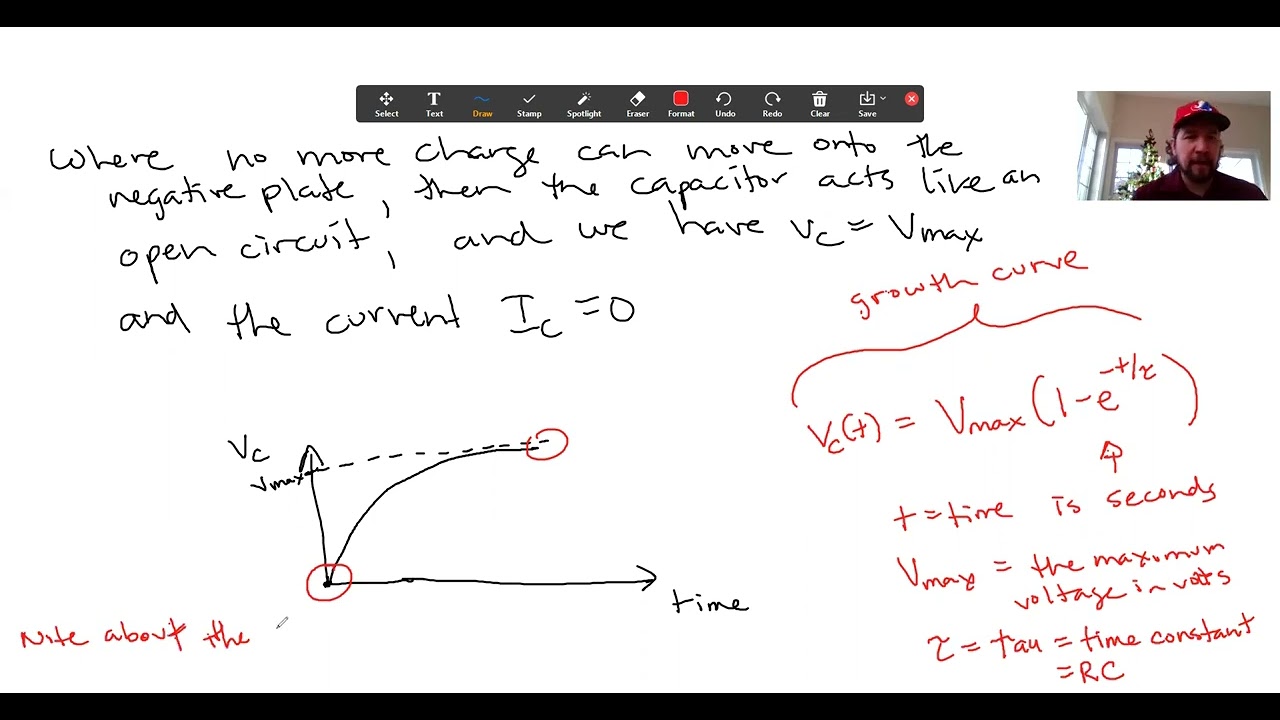 Select Text Draw Stamp Spotlight Eraser Format Undo Redo Clear Save
where no more charge can move onto the
negative plate, then the capacitor acts like an
open circuit, and we have Vc = Vmax
and the current Ic = 0
growth curve
Vc(t) = Vmax(1-e^-t/τ)
Vc
Vmax
time
t = time is seconds
Vmax = the maximum
voltage in volts
τ = tau = time constant
= RC
Note about the